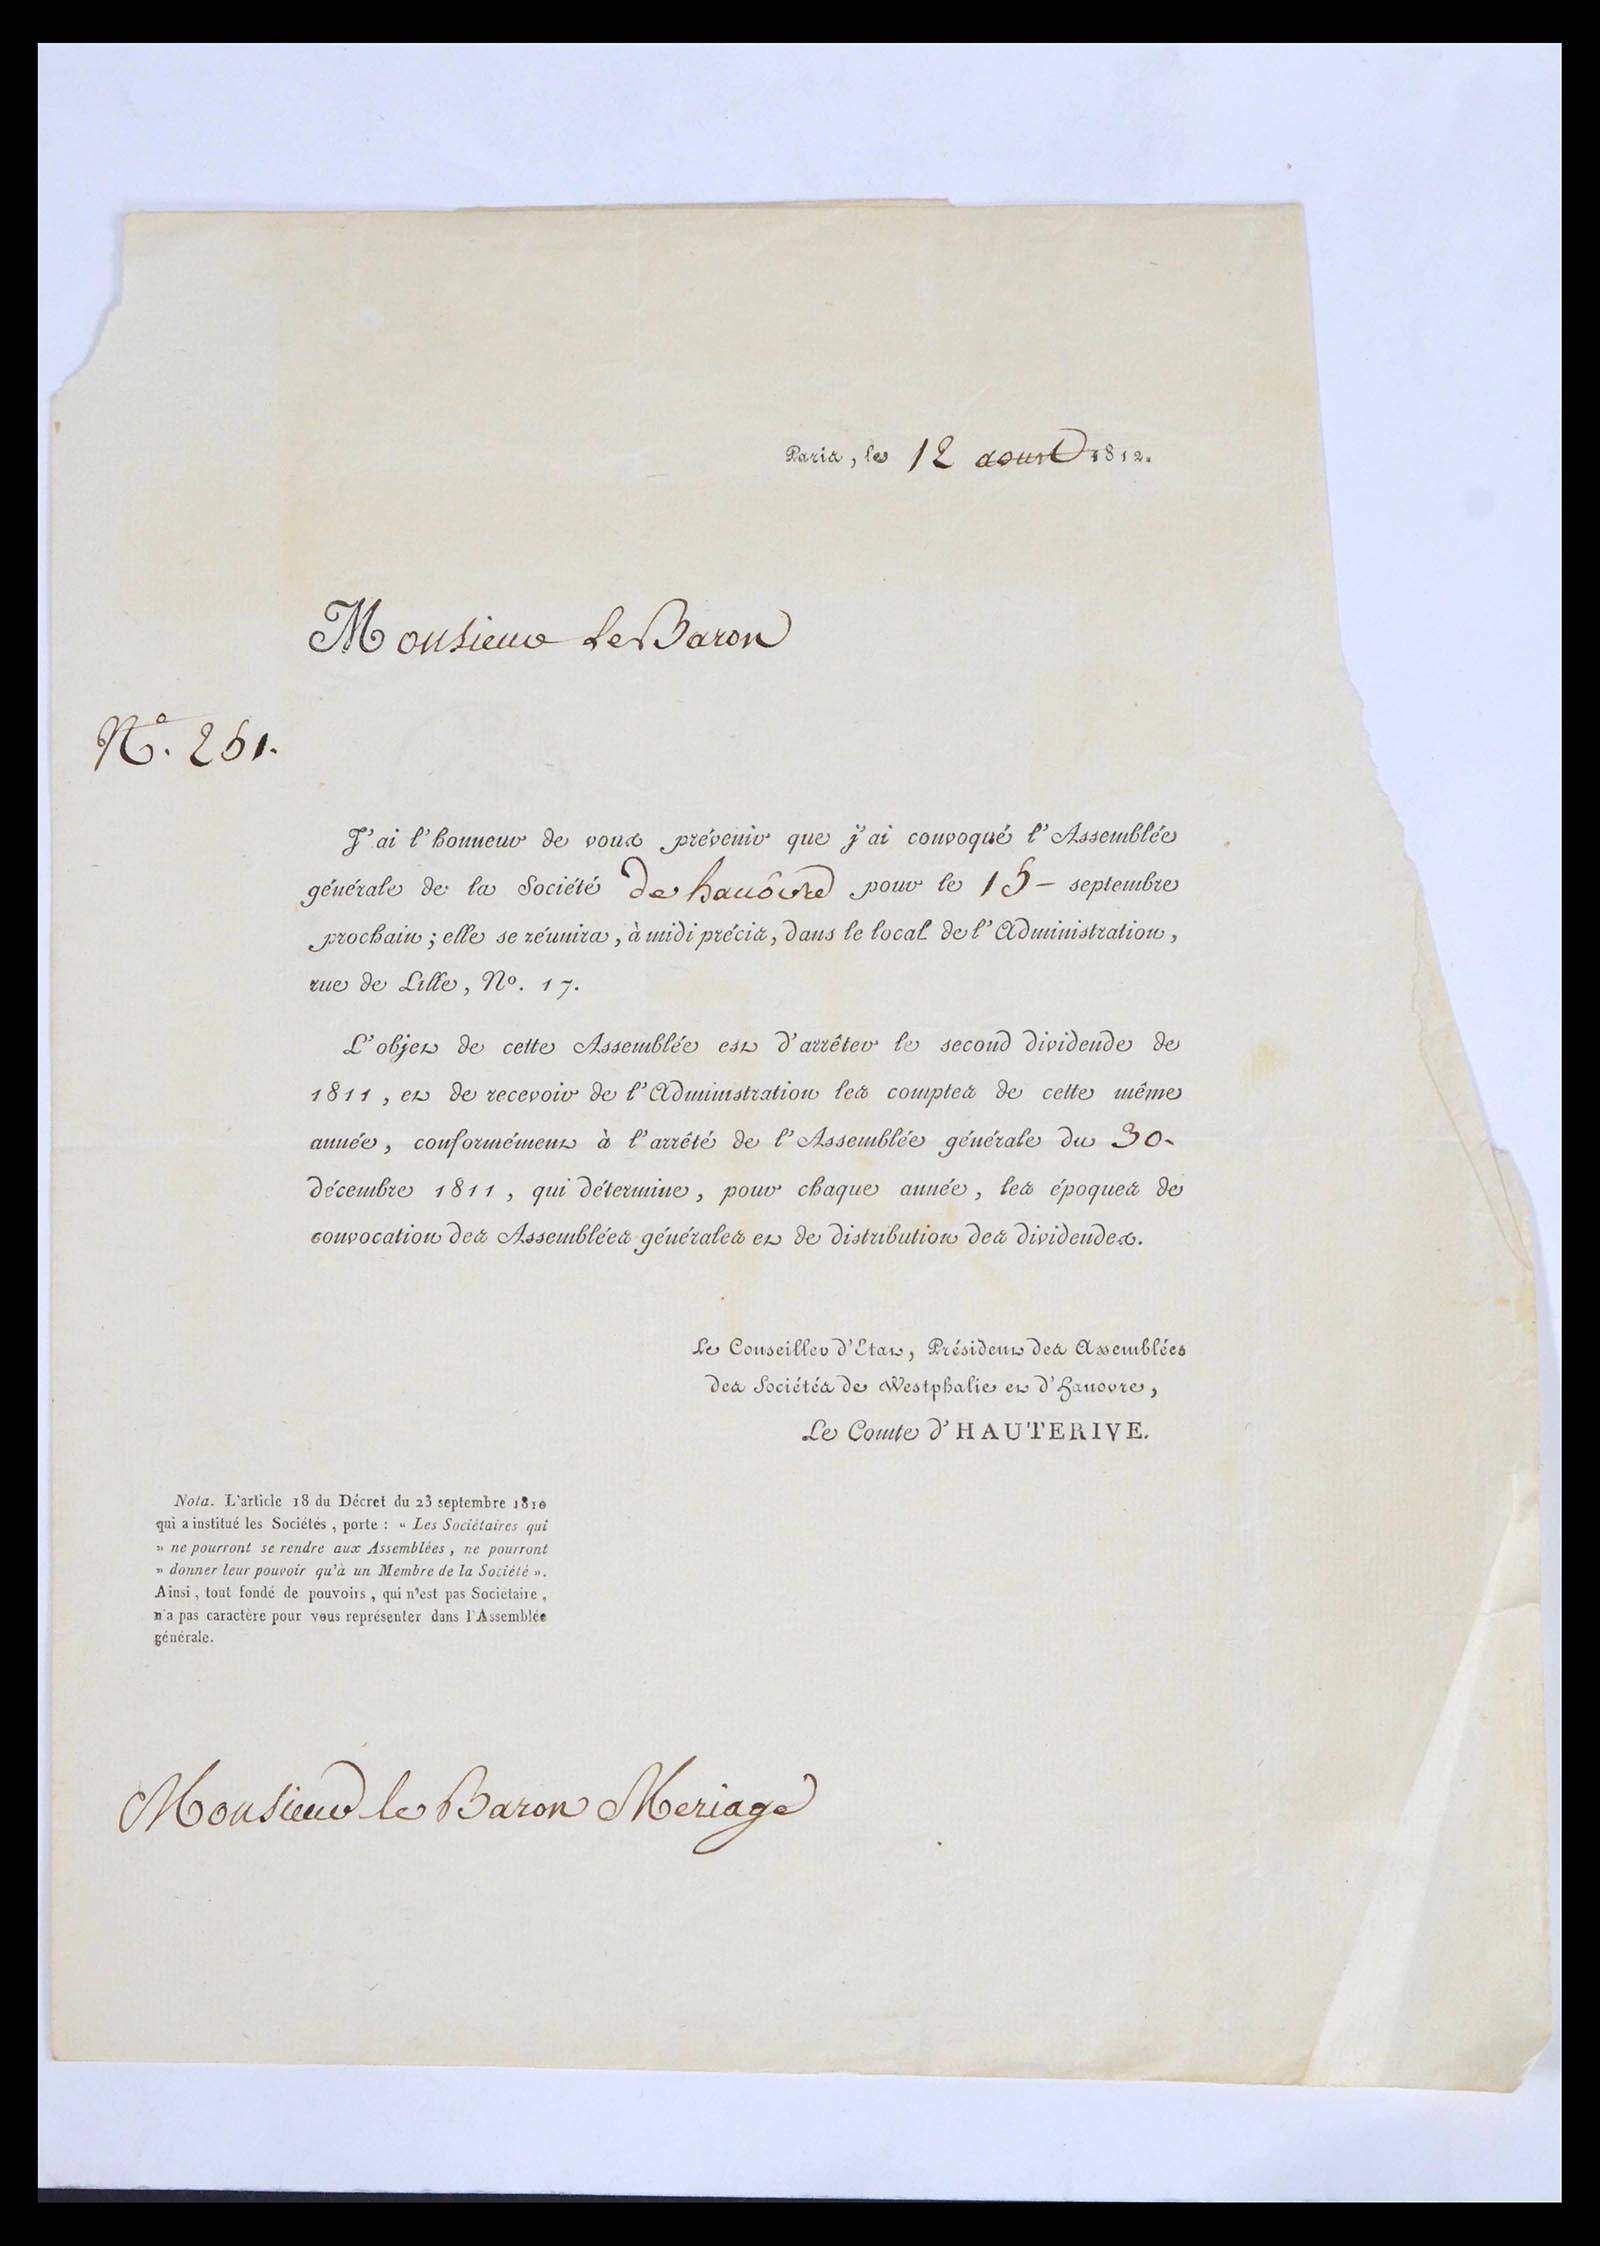 Paris, le 12 aoust 1812.
Monsieur le Baron
N.° 251.
J'ai l'honneur de vous prévenir que j'ai convoqué l'Assemblée
générale de la Société de hanôvre pour le 15 - septembre
prochain ; elle se réunira, à midi précis, dans le local de l'Administration,
rue de Lille, N°. 17.
L'objet de cette Assemblée est d'arrêter le second dividende de
1811, et de recevoir de l'Administration les comptes de cette même
année, conformément à l'arrêté de l'Assemblée générale du 30-
décembre 1811, qui détermine, pour chaque année, les époques de
convocation des Assemblées générales et de distribution des dividendes.
Le Conseiller d'Etat, Président des Assemblées
des Sociétés de Westphalie et d'Hanovre,
Le Comte d'HAUTERIVE.
Nota. L'article 18 du Décret du 23 septembre 1810
qui a institué les Sociétés, porte : « Les Sociétaires qui
» ne pourront se rendre aux Assemblées, ne pourront
» donner leur pouvoir qu'à un Membre de la Société ».
Ainsi, tout fondé de pouvoirs, qui n'est pas Sociétaire,
n'a pas caractère pour vous représenter dans l'Assemblée
générale.
Monsieur le Baron Meriage